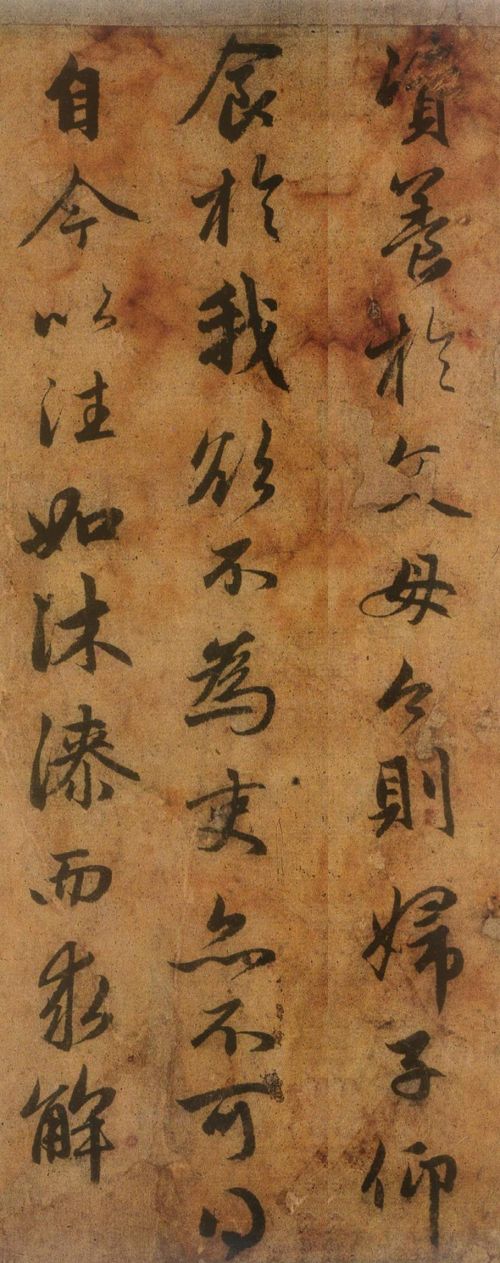 資養於父母今則婦子仰
食於我欲不為吏亦不可得
自今以往如沐漆而求解